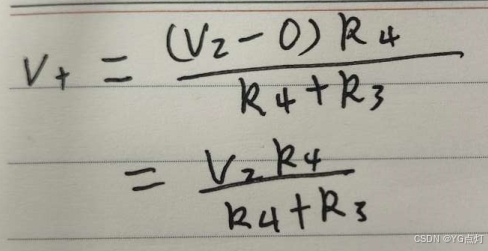 V+ = (V2-0) R4 / R4+R3
= V2 R4 / R4+R3
CSDN @YG点灯